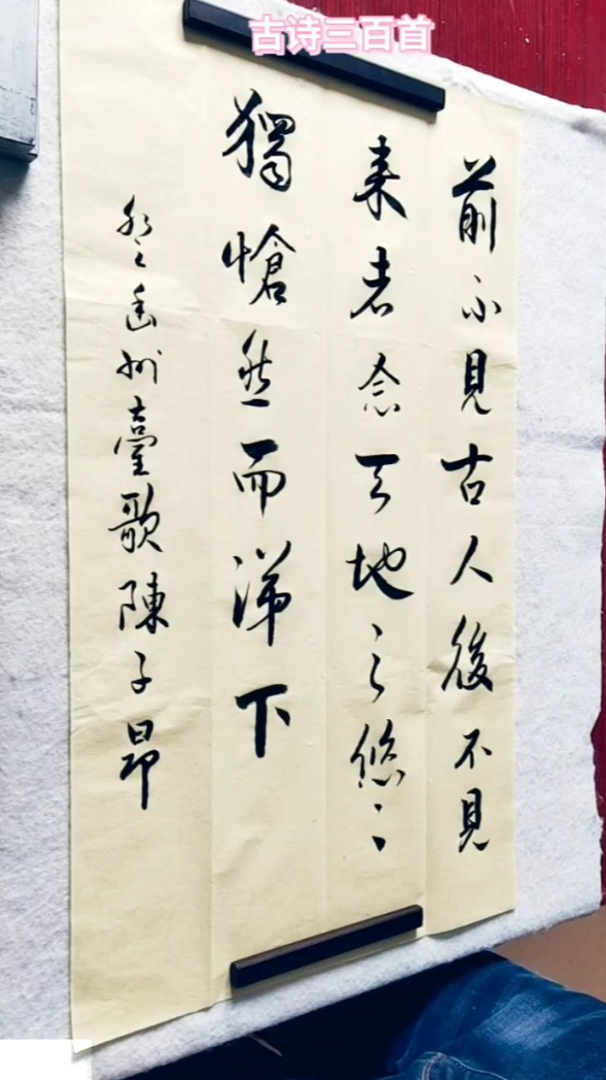 古诗三百首
前不見古人後不見
来者念天地之悠々
獨愴然而涕下
登幽州臺歌陳子昂